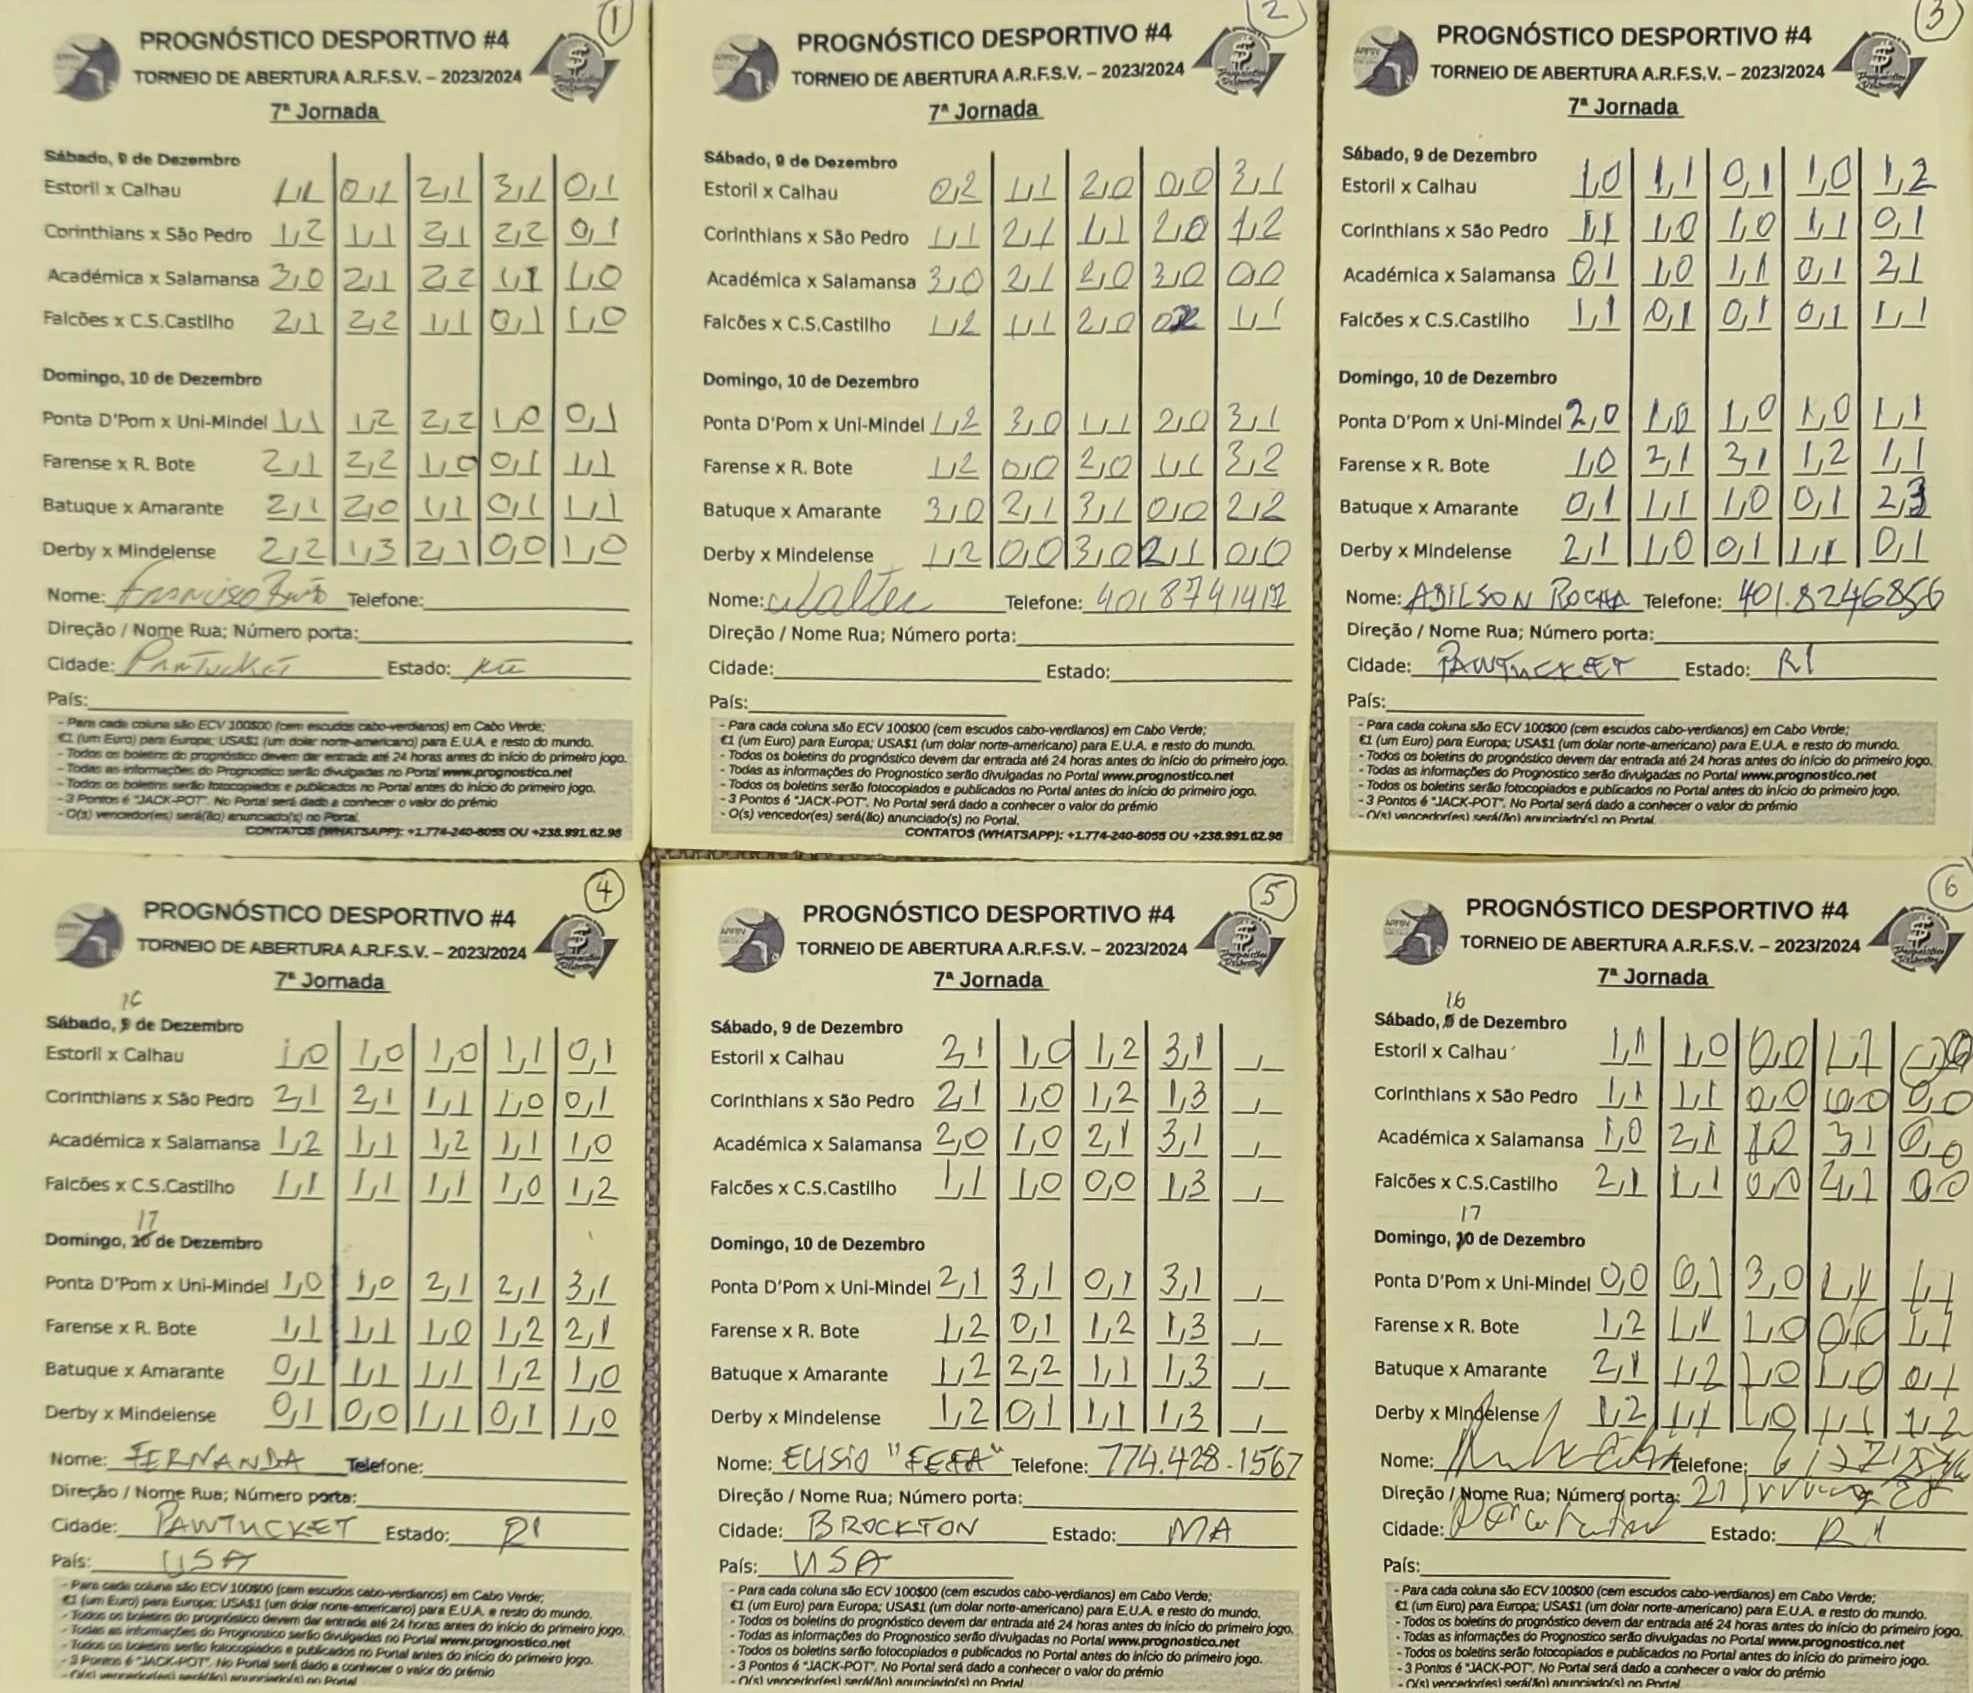 1
PROGNÓSTICO DESPORTIVO #4
TORNEIO DE ABERTURA A.R.F.S.V. – 2023/2024
7ª Jornada
Sábado, 9 de Dezembro
Estoril x Calhau 1,1 0,1 2,1 3,1 0,1
Corinthians x São Pedro 1,2 1,1 2,1 2,2 0,1
Académica x Salamansa 3,0 2,1 2,2 1,1 1,0
Falcões x C.S.Castilho 2,1 2,2 1,1 0,1 1,0
Domingo, 10 de Dezembro
Ponta D'Pom x Uni-Mindel 1,1 1,2 2,2 1,0 0,1
Farense x R. Bote 2,1 2,2 1,0 0,1 1,1
Batuque x Amarante 2,1 2,0 1,1 0,1 1,1
Derby x Mindelense 2,2 1,3 2,1 0,0 1,0
Nome: Telefone:
Direção / Nome Rua; Número porta:
Cidade: Pawtucket Estado:
País:
- Para cada coluna são ECV 100$00 (cem escudos cabo-verdianos) em Cabo Verde;
€1 (um Euro) para Europa; USA$1 (um dolar norte-americano) para E.U.A. e resto do mundo.
- Todos os boletins do prognóstico devem dar entrada até 24 horas antes do início do primeiro jogo.
- Todas as informações do Prognostico serão divulgadas no Portal www.prognostico.net
- Todos os boletins serão fotocopiados e publicados no Portal antes do início do primeiro jogo.
- 3 Pontos é "JACK-POT". No Portal será dado a conhecer o valor do prémio
- O(s) vencedor(es) será(ão) anunciado(s) no Portal.
CONTATOS (WHATSAPP): +1.774-240-6055 OU +238.991.62.98
2
PROGNÓSTICO DESPORTIVO #4
TORNEIO DE ABERTURA A.R.F.S.V. – 2023/2024
7ª Jornada
Sábado, 9 de Dezembro
Estoril x Calhau 0,2 1,1 2,0 0,0 3,1
Corinthians x São Pedro 1,1 2,1 1,1 2,0 1,2
Académica x Salamansa 3,0 2,1 2,0 3,0 0,0
Falcões x C.S.Castilho 1,2 1,1 2,0 0,2 1,1
Domingo, 10 de Dezembro
Ponta D'Pom x Uni-Mindel 1,2 3,0 1,1 2,0 3,1
Farense x R. Bote 1,2 0,0 2,0 1,1 3,2
Batuque x Amarante 3,0 2,1 3,1 0,0 2,2
Derby x Mindelense 1,2 0,0 3,0 2,1 0,0
Nome: Walter Telefone:
Direção / Nome Rua; Número porta:
Cidade: Estado:
País:
- Para cada coluna são ECV 100$00 (cem escudos cabo-verdianos) em Cabo Verde;
€1 (um Euro) para Europa; USA$1 (um dolar norte-americano) para E.U.A. e resto do mundo.
- Todos os boletins do prognóstico devem dar entrada até 24 horas antes do início do primeiro jogo.
- Todas as informações do Prognostico serão divulgadas no Portal www.prognostico.net
- Todos os boletins serão fotocopiados e publicados no Portal antes do início do primeiro jogo.
- 3 Pontos é "JACK-POT". No Portal será dado a conhecer o valor do prémio
- O(s) vencedor(es) será(ão) anunciado(s) no Portal.
CONTATOS (WHATSAPP): +1.774-240-6055 OU +238.991.62.98
3
PROGNÓSTICO DESPORTIVO #4
TORNEIO DE ABERTURA A.R.F.S.V. – 2023/2024
7ª Jornada
Sábado, 9 de Dezembro
Estoril x Calhau 1,0 1,1 0,1 1,0 1,2
Corinthians x São Pedro 1,1 1,0 1,0 1,1 0,1
Académica x Salamansa 0,1 1,0 1,1 0,1 2,1
Falcões x C.S.Castilho 1,1 0,1 0,1 0,1 1,1
Domingo, 10 de Dezembro
Ponta D'Pom x Uni-Mindel 2,0 1,0 1,0 1,0 1,1
Farense x R. Bote 1,0 2,1 3,1 1,2 1,1
Batuque x Amarante 0,1 1,1 1,0 0,1 2,3
Derby x Mindelense 2,1 1,0 0,1 1,1 0,1
Nome: ADILSON ROCHA Telefone: 401.8246856
Direção / Nome Rua; Número porta:
Cidade: PAWTUCKET Estado: RI
País:
- Para cada coluna são ECV 100$00 (cem escudos cabo-verdianos) em Cabo Verde;
€1 (um Euro) para Europa; USA$1 (um dolar norte-americano) para E.U.A. e resto do mundo.
- Todos os boletins do prognóstico devem dar entrada até 24 horas antes do início do primeiro jogo.
- Todas as informações do Prognostico serão divulgadas no Portal www.prognostico.net
- Todos os boletins serão fotocopiados e publicados no Portal antes do início do primeiro jogo.
- 3 Pontos é "JACK-POT". No Portal será dado a conhecer o valor do prémio
- O(s) vencedor(es) será(ão) anunciado(s) no Portal.
4
PROGNÓSTICO DESPORTIVO #4
TORNEIO DE ABERTURA A.R.F.S.V. – 2023/2024
7ª Jornada
16
Sábado, 9 de Dezembro
Estoril x Calhau 1,0 1,0 1,0 1,1 0,1
Corinthians x São Pedro 2,1 2,1 1,1 1,0 0,1
Académica x Salamansa 1,2 1,1 1,2 1,1 1,0
Falcões x C.S.Castilho 1,1 1,1 1,1 1,0 1,2
17
Domingo, 10 de Dezembro
Ponta D'Pom x Uni-Mindel 1,0 1,0 2,1 2,1 3,1
Farense x R. Bote 1,1 1,1 1,0 1,2 2,1
Batuque x Amarante 0,1 1,1 1,1 1,2 1,0
Derby x Mindelense 0,1 0,0 1,1 0,1 1,0
Nome: FERNANDA Telefone:
Direção / Nome Rua; Número porta:
Cidade: PAWTUCKET Estado: RI
País: USA
- Para cada coluna são ECV 100$00 (cem escudos cabo-verdianos) em Cabo Verde;
€1 (um Euro) para Europa; USA$1 (um dolar norte-americano) para E.U.A. e resto do mundo.
- Todos os boletins do prognóstico devem dar entrada até 24 horas antes do início do primeiro jogo.
- Todas as informações do Prognostico serão divulgadas no Portal www.prognostico.net
- Todos os boletins serão fotocopiados e publicados no Portal antes do início do primeiro jogo.
- 3 Pontos é "JACK-POT". No Portal será dado a conhecer o valor do prémio
- O(s) vencedor(es) será(ão) anunciado(s) no Portal
5
PROGNÓSTICO DESPORTIVO #4
TORNEIO DE ABERTURA A.R.F.S.V. – 2023/2024
7ª Jornada
Sábado, 9 de Dezembro
Estoril x Calhau 2,1 1,0 1,2 3,1 _,_
Corinthians x São Pedro 2,1 1,0 1,2 1,3 _,_
Académica x Salamansa 2,0 1,0 2,1 3,1 _,_
Falcões x C.S.Castilho 1,1 1,0 0,0 1,3 _,_
Domingo, 10 de Dezembro
Ponta D'Pom x Uni-Mindel 2,1 3,1 0,1 3,1 _,_
Farense x R. Bote 1,2 0,1 1,2 1,3 _,_
Batuque x Amarante 1,2 2,2 1,1 1,3 _,_
Derby x Mindelense 1,2 0,1 1,1 1,3 _,_
Nome: ELISIO "FEFA" Telefone: 774.428.1567
Direção / Nome Rua; Número porta:
Cidade: BROCKTON Estado: MA
País: USA
- Para cada coluna são ECV 100$00 (cem escudos cabo-verdianos) em Cabo Verde;
€1 (um Euro) para Europa; USA$1 (um dolar norte-americano) para E.U.A. e resto do mundo.
- Todos os boletins do prognóstico devem dar entrada até 24 horas antes do início do primeiro jogo.
- Todas as informações do Prognostico serão divulgadas no Portal www.prognostico.net
- Todos os boletins serão fotocopiados e publicados no Portal antes do início do primeiro jogo.
- 3 Pontos é "JACK-POT". No Portal será dado a conhecer o valor do prémio
- O(s) vencedor(es) será(ão) anunciado(s) no Portal
6
PROGNÓSTICO DESPORTIVO #4
TORNEIO DE ABERTURA A.R.F.S.V. – 2023/2024
7ª Jornada
16
Sábado, 9 de Dezembro
Estoril x Calhau 1,1 1,0 0,0 1,1
Corinthians x São Pedro 1,1 1,1 0,0 0,0 0,0
Académica x Salamansa 1,0 2,1 1,2 3,1 0,0
Falcões x C.S.Castilho 2,1 1,1 0,0 0,0
17
Domingo, 10 de Dezembro
Ponta D'Pom x Uni-Mindel 0,0 0,1 3,0 1,1 1,1
Farense x R. Bote 1,2 1,1 1,0 0,0 1,1
Batuque x Amarante 2,1 1,2 1,0 1,0 0,1
Derby x Mindelense 1,2 1,1 1,0 1,1 1,2
Nome: Telefone:
Direção / Nome Rua; Número porta:
Cidade: Estado: RI
País:
- Para cada coluna são ECV 100$00 (cem escudos cabo-verdianos) em Cabo Verde;
€1 (um Euro) para Europa; USA$1 (um dolar norte-americano) para E.U.A. e resto do mundo.
- Todos os boletins do prognóstico devem dar entrada até 24 horas antes do início do primeiro jogo.
- Todas as informações do Prognostico serão divulgadas no Portal www.prognostico.net
- Todos os boletins serão fotocopiados e publicados no Portal antes do início do primeiro jogo.
- 3 Pontos é "JACK-POT". No Portal será dado a conhecer o valor do prémio
- O(s) vencedor(es) será(ão) anunciado(s) no Portal